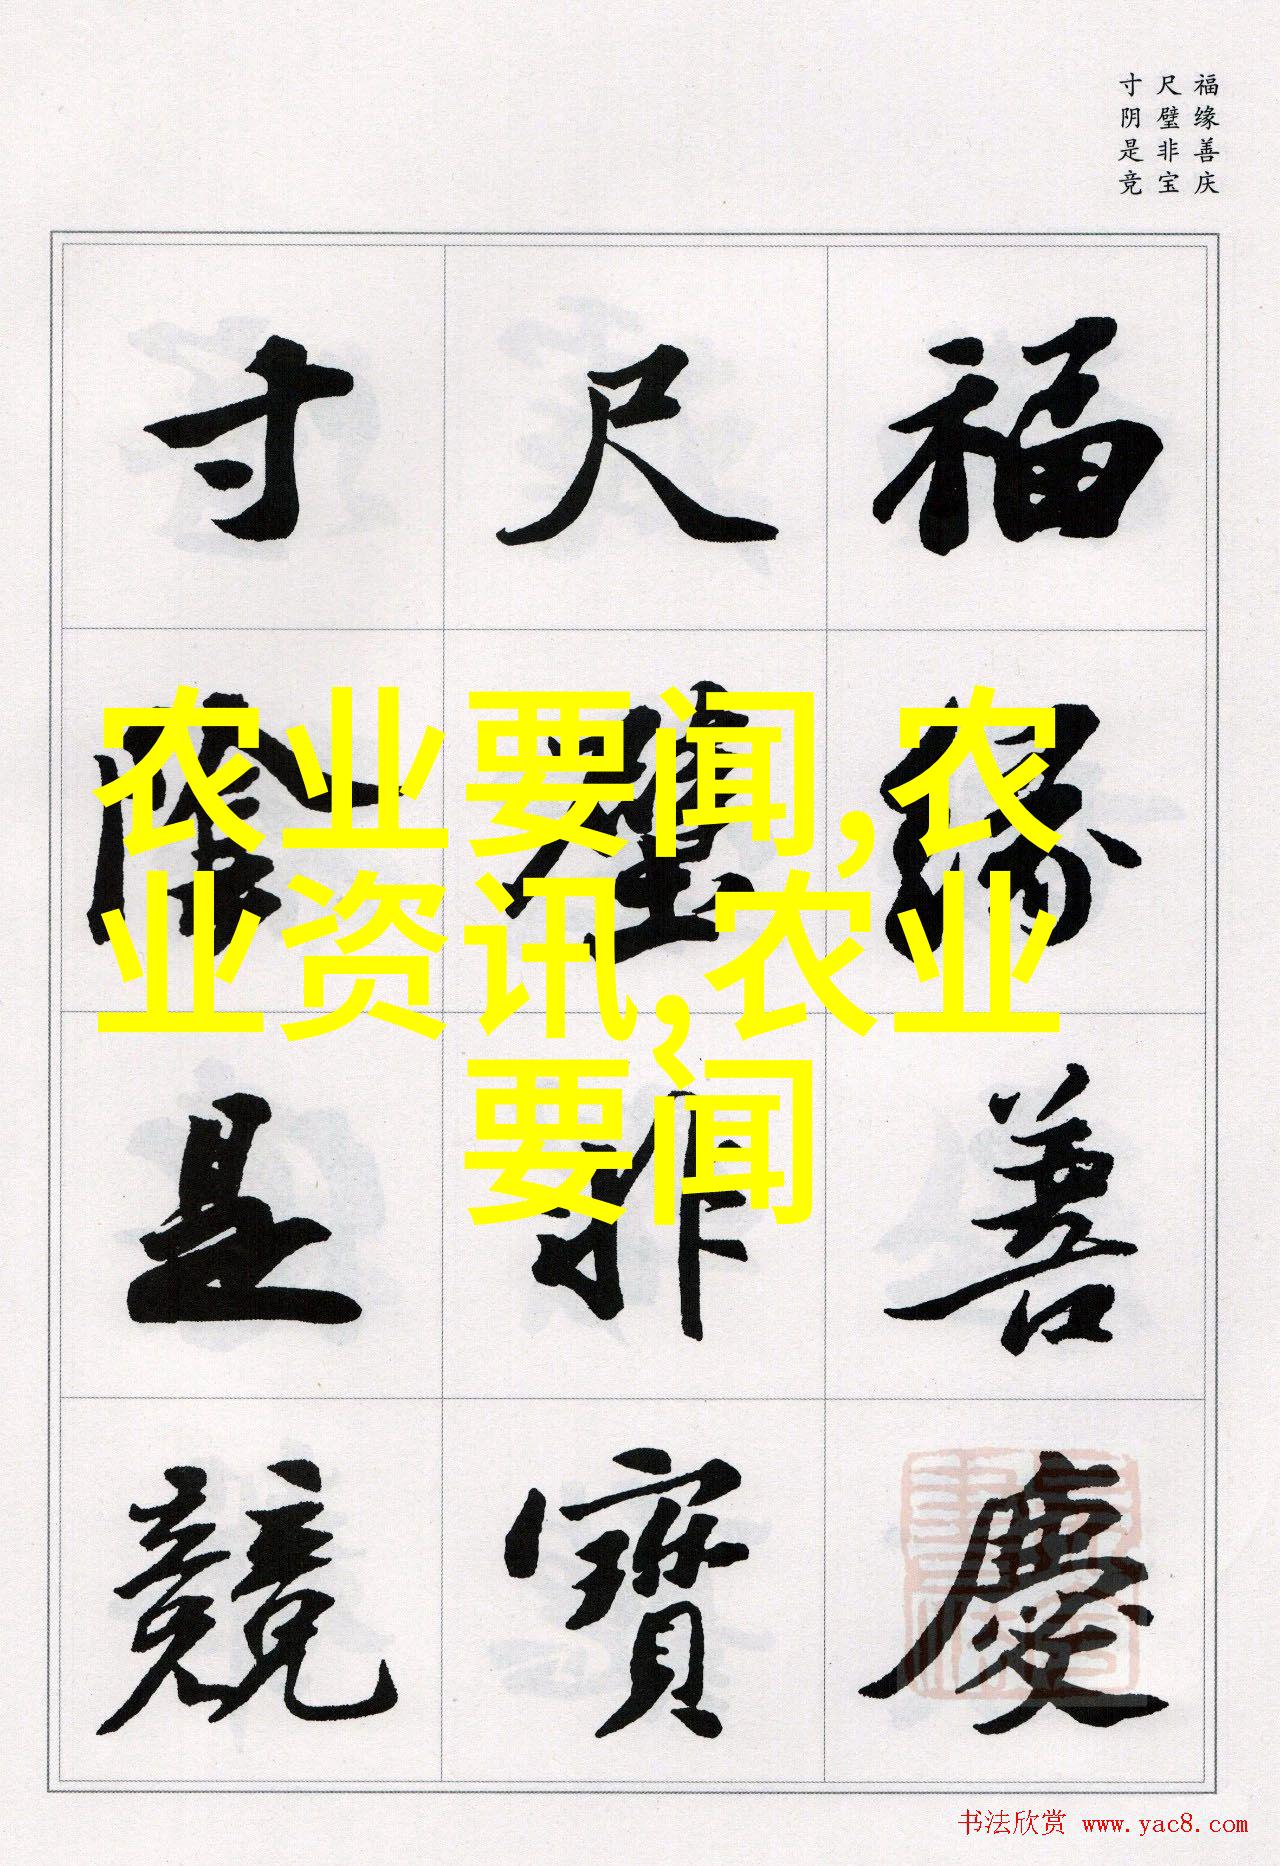 福缘善庆
尺璧非宝
寸阴是竞
福緣善慶
尺璧非寶
寸陰是競
农业要闻,农
业资讯,农业
要闻
书法欣赏 www.yac8.com